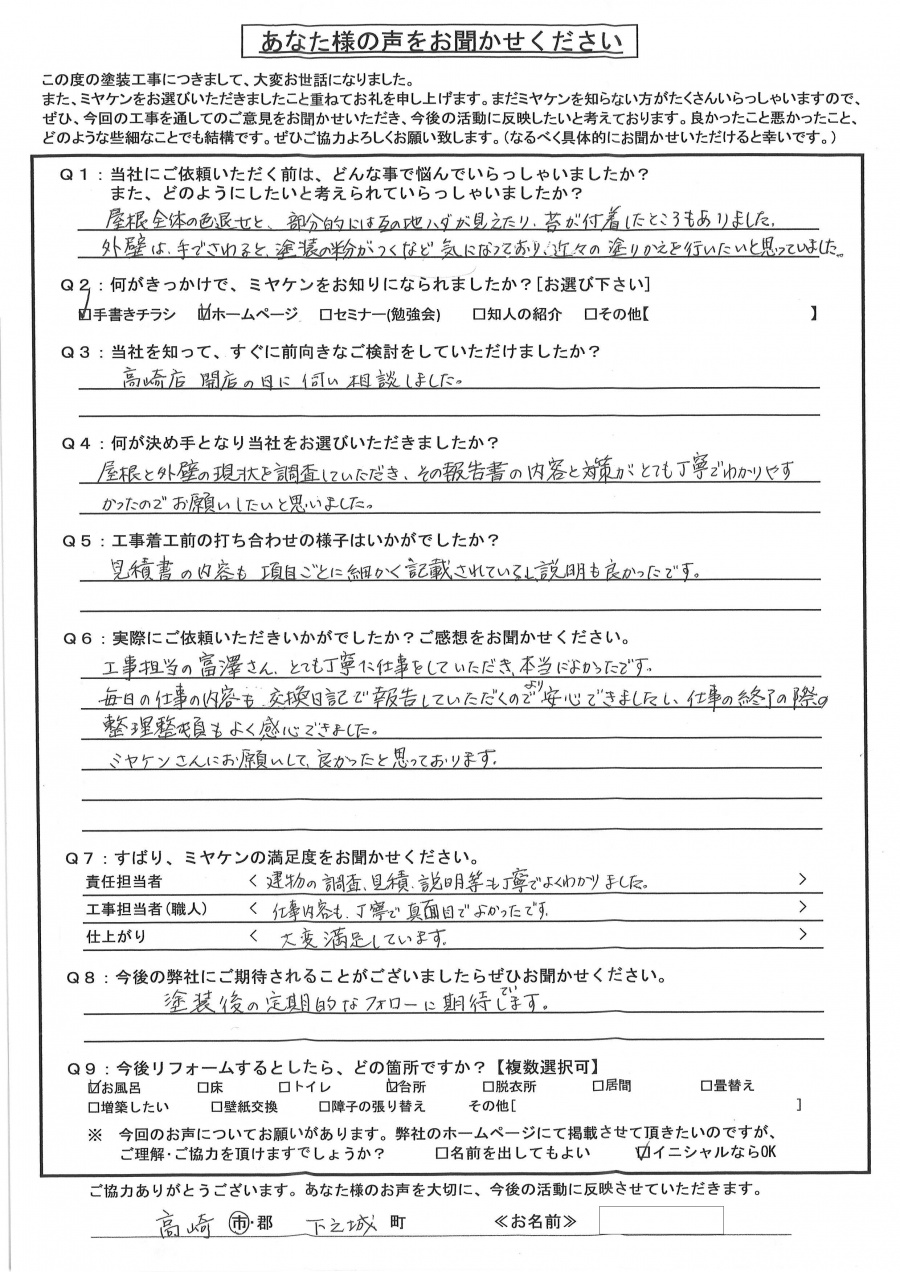 あなた様の声をお聞かせください
この度の塗装工事につきまして、大変お世話になりました。
また、ミヤケンをお選びいただきましたこと重ねてお礼を申し上げます。まだミヤケンを知らない方がたくさんいらっしゃいますので、
ぜひ、今回の工事を通してのご意見をお聞かせいただき、今後の活動に反映したいと考えております。良かったこと悪かったこと、
どのような些細なことでも結構です。ぜひご協力よろしくお願い致します。（なるべく具体的にお聞かせいただけると幸いです。）
Q１：当社にご依頼いただく前は、どんな事で悩んでいらっしゃいましたか？
また、どのようにしたいと考えられていらっしゃいましたか？
屋根全体の色退せと、部分的には瓦の地ハダが見えたり、苔が付着したところもありました。
外壁は、手でさわると、塗装の粉がつくなど気になっており、近々の塗りかえを行いたいと思っていました。
Q２：何がきっかけで、ミヤケンをお知りになられましたか？[お選び下さい]
☑手書きチラシ ☑ホームページ □セミナー(勉強会) □知人の紹介 □その他【 】
Q３：当社を知って、すぐに前向きなご検討をしていただけましたか？
高崎店 開店の日に伺い相談しました。
Q４：何が決め手となり当社をお選びいただきましたか？
屋根と外壁の現状を調査していただき、その報告書の内容と対策がとても丁寧でわかりやす
かったのでお願いしたいと思いました。
Q５：工事着工前の打ち合わせの様子はいかがでしたか？
見積書の内容も項目ごとに細かく記載されているし、説明も良かったです。
Q６：実際にご依頼いただきいかがでしたか？ご感想をお聞かせください。
工事担当の富澤さん、とても丁寧に仕事をしていただき、本当によかったです。
毎日の仕事の内容も、交換日記で報告していただくのでより安心できましたし、仕事の終了の際の
整理整頓もよく感心できました。
ミヤケンさんにお願いして、良かったと思っております。
Q７：ずばり、ミヤケンの満足度をお聞かせください。
責任担当者 〈 建物の調査、見積、説明等も丁寧でよくわかりました。 〉
工事担当者(職人) 〈 仕事内容も、丁寧で真面目でよかったです。 〉
仕上がり 〈 大変満足しています。 〉
Q８：今後の弊社にご期待されることがございましたらぜひお聞かせください。
塗装後の定期的なフォローに期待しています。
Q９：今後リフォームするとしたら、どの箇所ですか？【複数選択可】
☑お風呂 □床 □トイレ ☑台所 □脱衣所 □居間 □畳替え
□増築したい □壁紙交換 □障子の張り替え その他[ ]
※ 今回のお声についてお願いがあります。弊社のホームページにて掲載させて頂きたいのですが、
ご理解・ご協力を頂けますでしょうか？ □名前を出してもよい ☑イニシャルならOK
ご協力ありがとうございます。あなた様のお声を大切に、今後の活動に反映させていただきます。
高崎 市・郡 下之城 町 ≪お名前≫